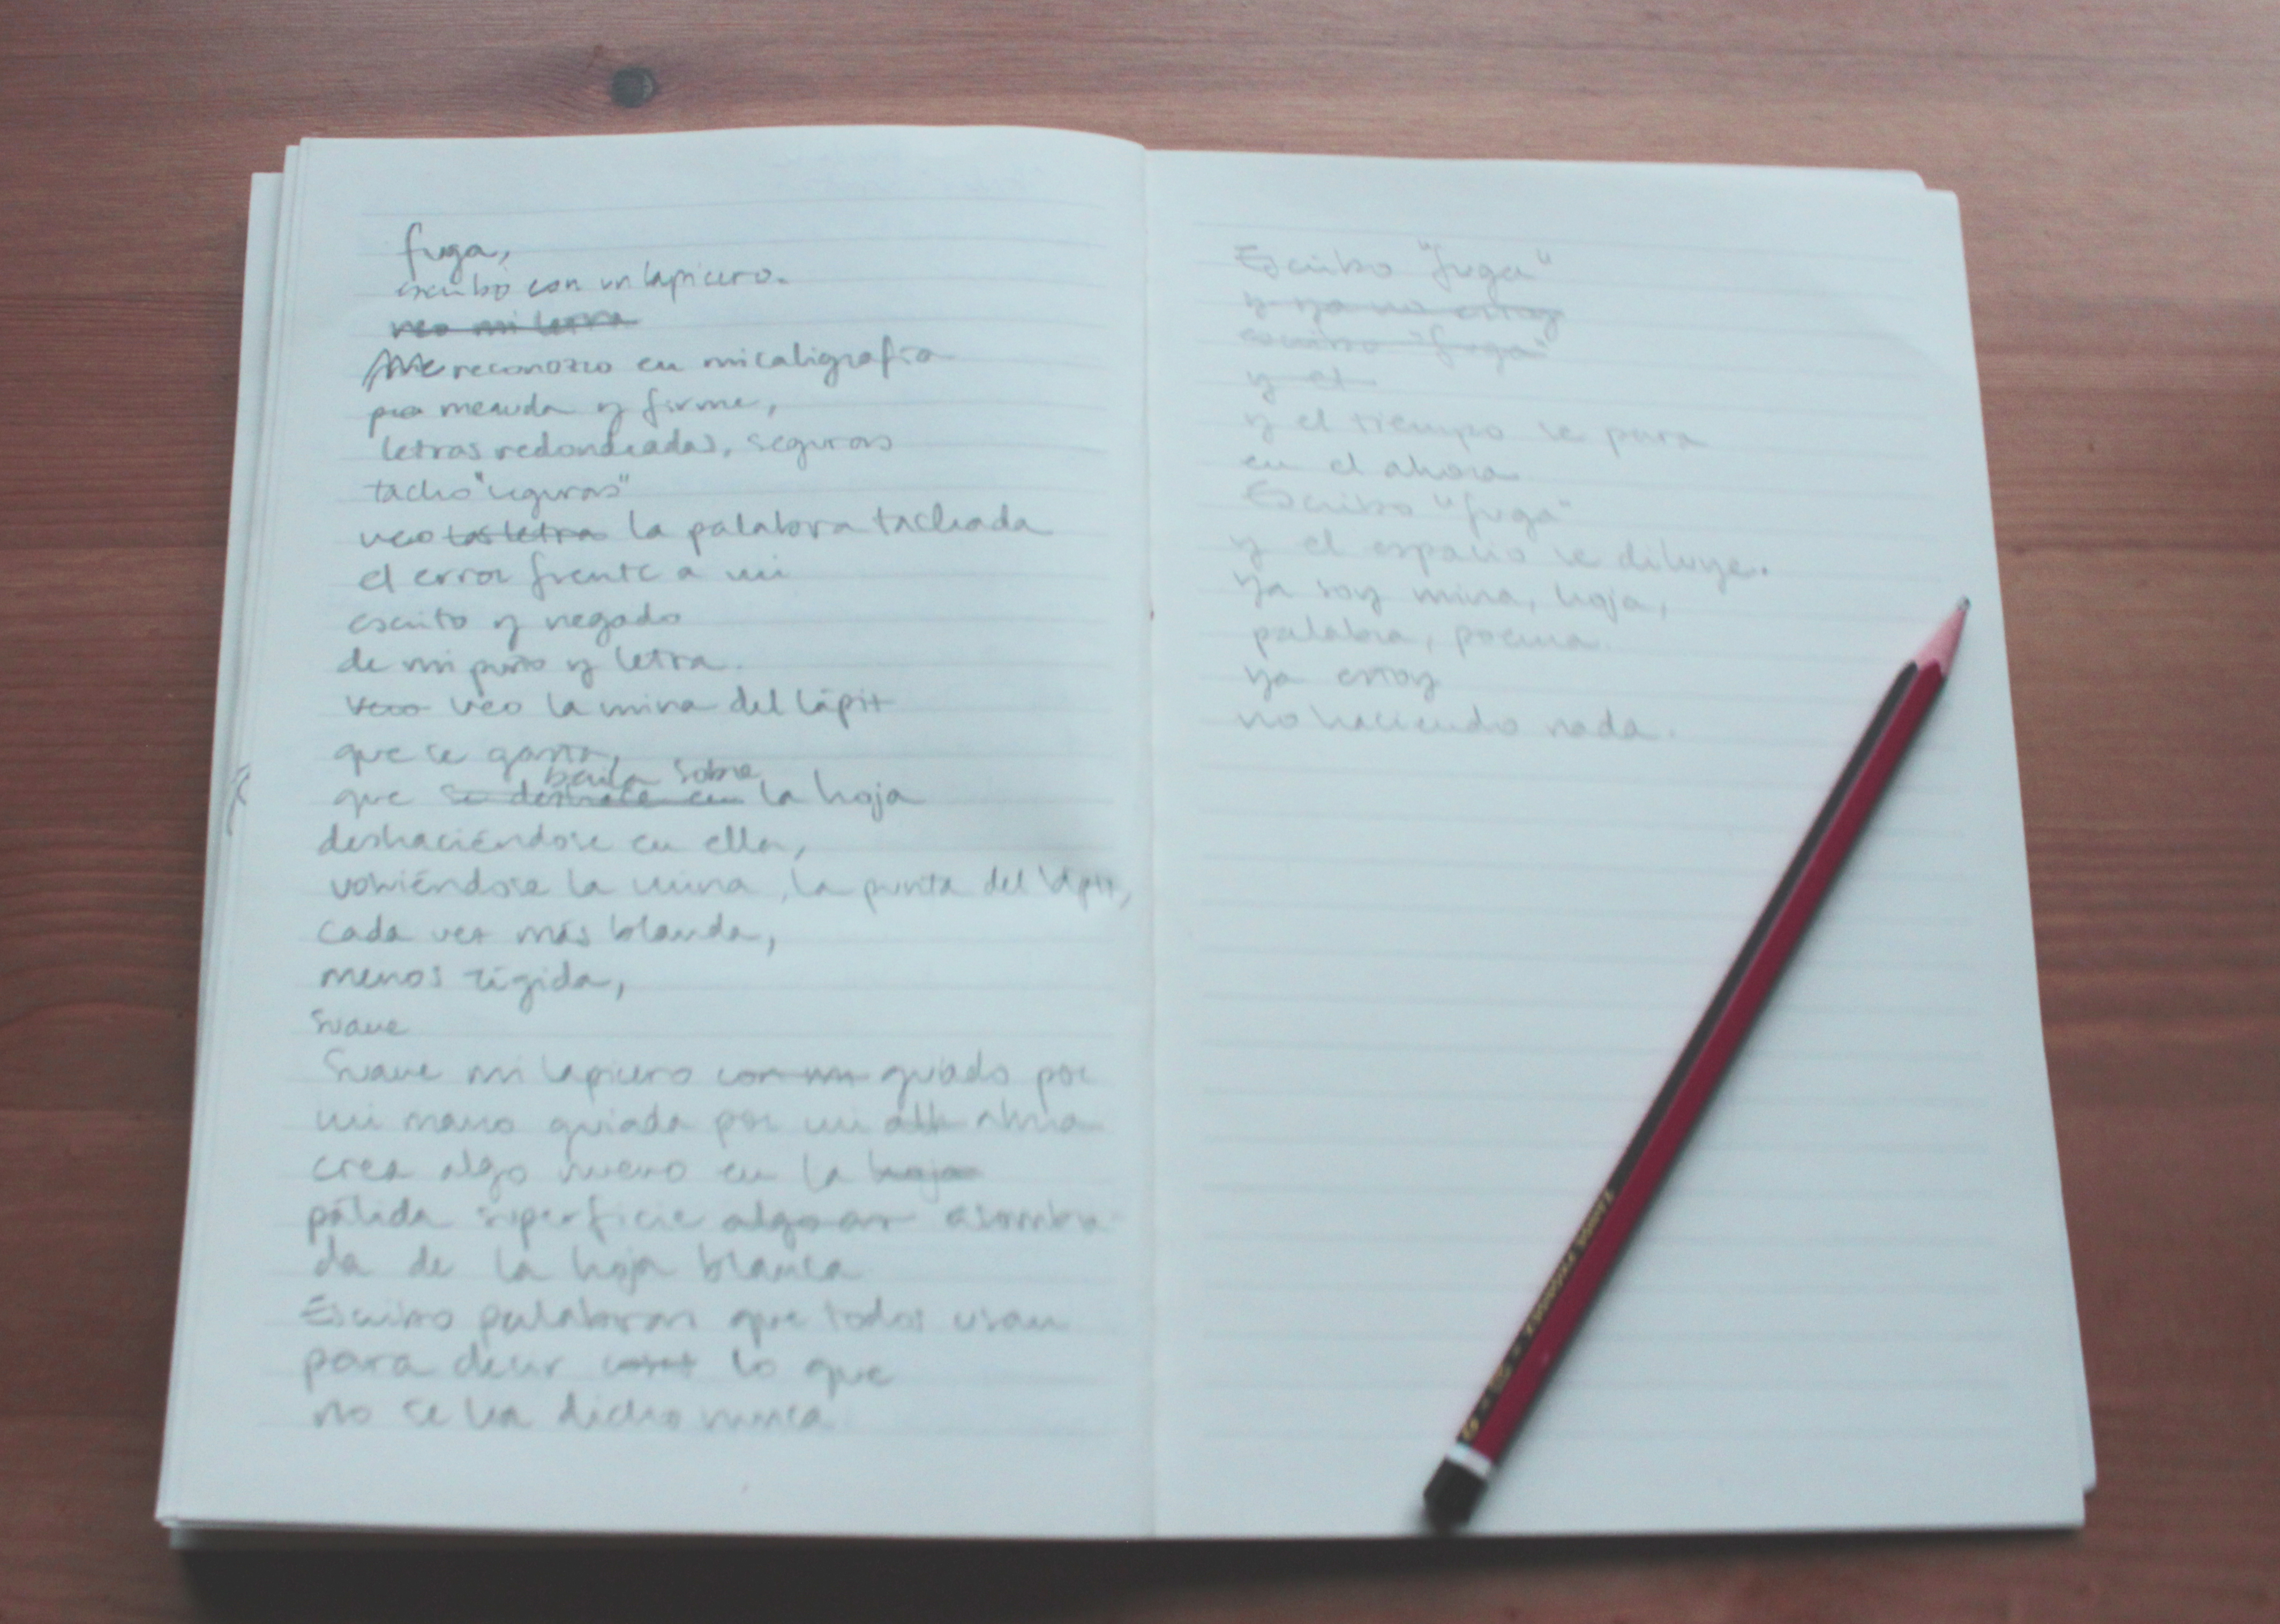 fuga,
escribo con un lapicero.
veo mi letra
Me reconozco en mi caligrafía
menuda y firme,
letras redondeadas, seguras
tacho "seguras"
veo las letra la palabra tachada
el error frente a mi
escrito y negado
de mi puño y letra.
veo la mina del lápiz
que se gasta,
baila sobre
que se deshace en la hoja
deshaciéndose en ella,
volviéndose la mina, la punta del lápiz,
cada vez más blanda,
menos rígida,
suave
Suave mi lapicero con mi guiado por
mi mano guiada por mi alma
crea algo nuevo en la hoja
pálida superficie asombra
da de la hoja blanca
Escribo palabras que todos usan
para decir lo que
no se ha dicho nunca.
Escribo "fuga"
y ya no estoy
escribo "fuga"
y el
y el tiempo se para
en el ahora.
Escribo "fuga"
y el espacio se diluye.
Ya soy mina, hoja,
palabra, poema.
ya estoy
no haciendo nada.